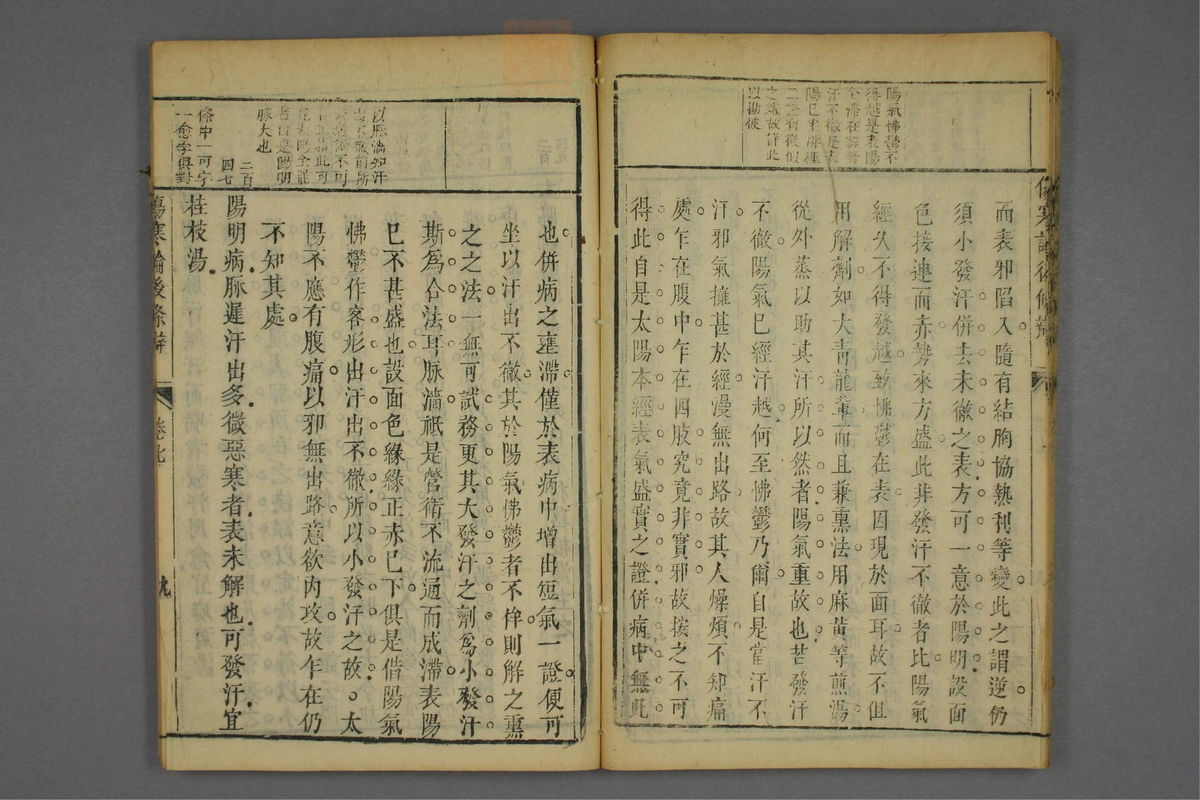 陽氣怫鬱不
得越是表陽
汗不徹是
陽巳
之 故詳此
以勘彼
傷寒論後條辨
而表邪陷入隨有結胸協熱利等變此之謂逆仍
須小發汗併去未徹之表方可一意於陽明設面
色接連而赤勢來方盛此非發汗不徹者比陽氣
經久不得發越致怫鬱在表因現於面耳故不但
用解劑如大青龍輩而且兼熏法用麻黃等煎湯
從外蒸以助其汗所以然者陽氣重故也若發汗
不徹陽氣巳經汗越何至怫鬱乃爾自是當汗不
汗邪氣擁甚於經漫無出路故其人燥煩不知痛
處乍在腹中乍在四肢究竟非實邪故按之不可
得此自是太陽本經表氣盛實之證併病中無此
也併病之壅滯僅於表病中增出短氣一證便可
坐以汗出不徹其於陽氣怫鬱者不侔則解之熏
之之法一無可試務更其大發汗之劑爲小發汗
斯爲合法耳脉濇祇是營衛不流通而成滯表陽
巳不甚盛也設面色緣緣正赤巳下俱是借陽氣
怫鬱作客形出汗出不徹所以小發汗之故太
陽不應有腹痛以邪無出路意欲內攻故乍在仍
不知其處
陽明病脉遲汗出多微惡寒者表未解也可發汗宜
桂枝湯
以脉濇知汗
脉大也
二百
四七
條中一可字
一愈字與對
傷寒論後條辨
卷七
九